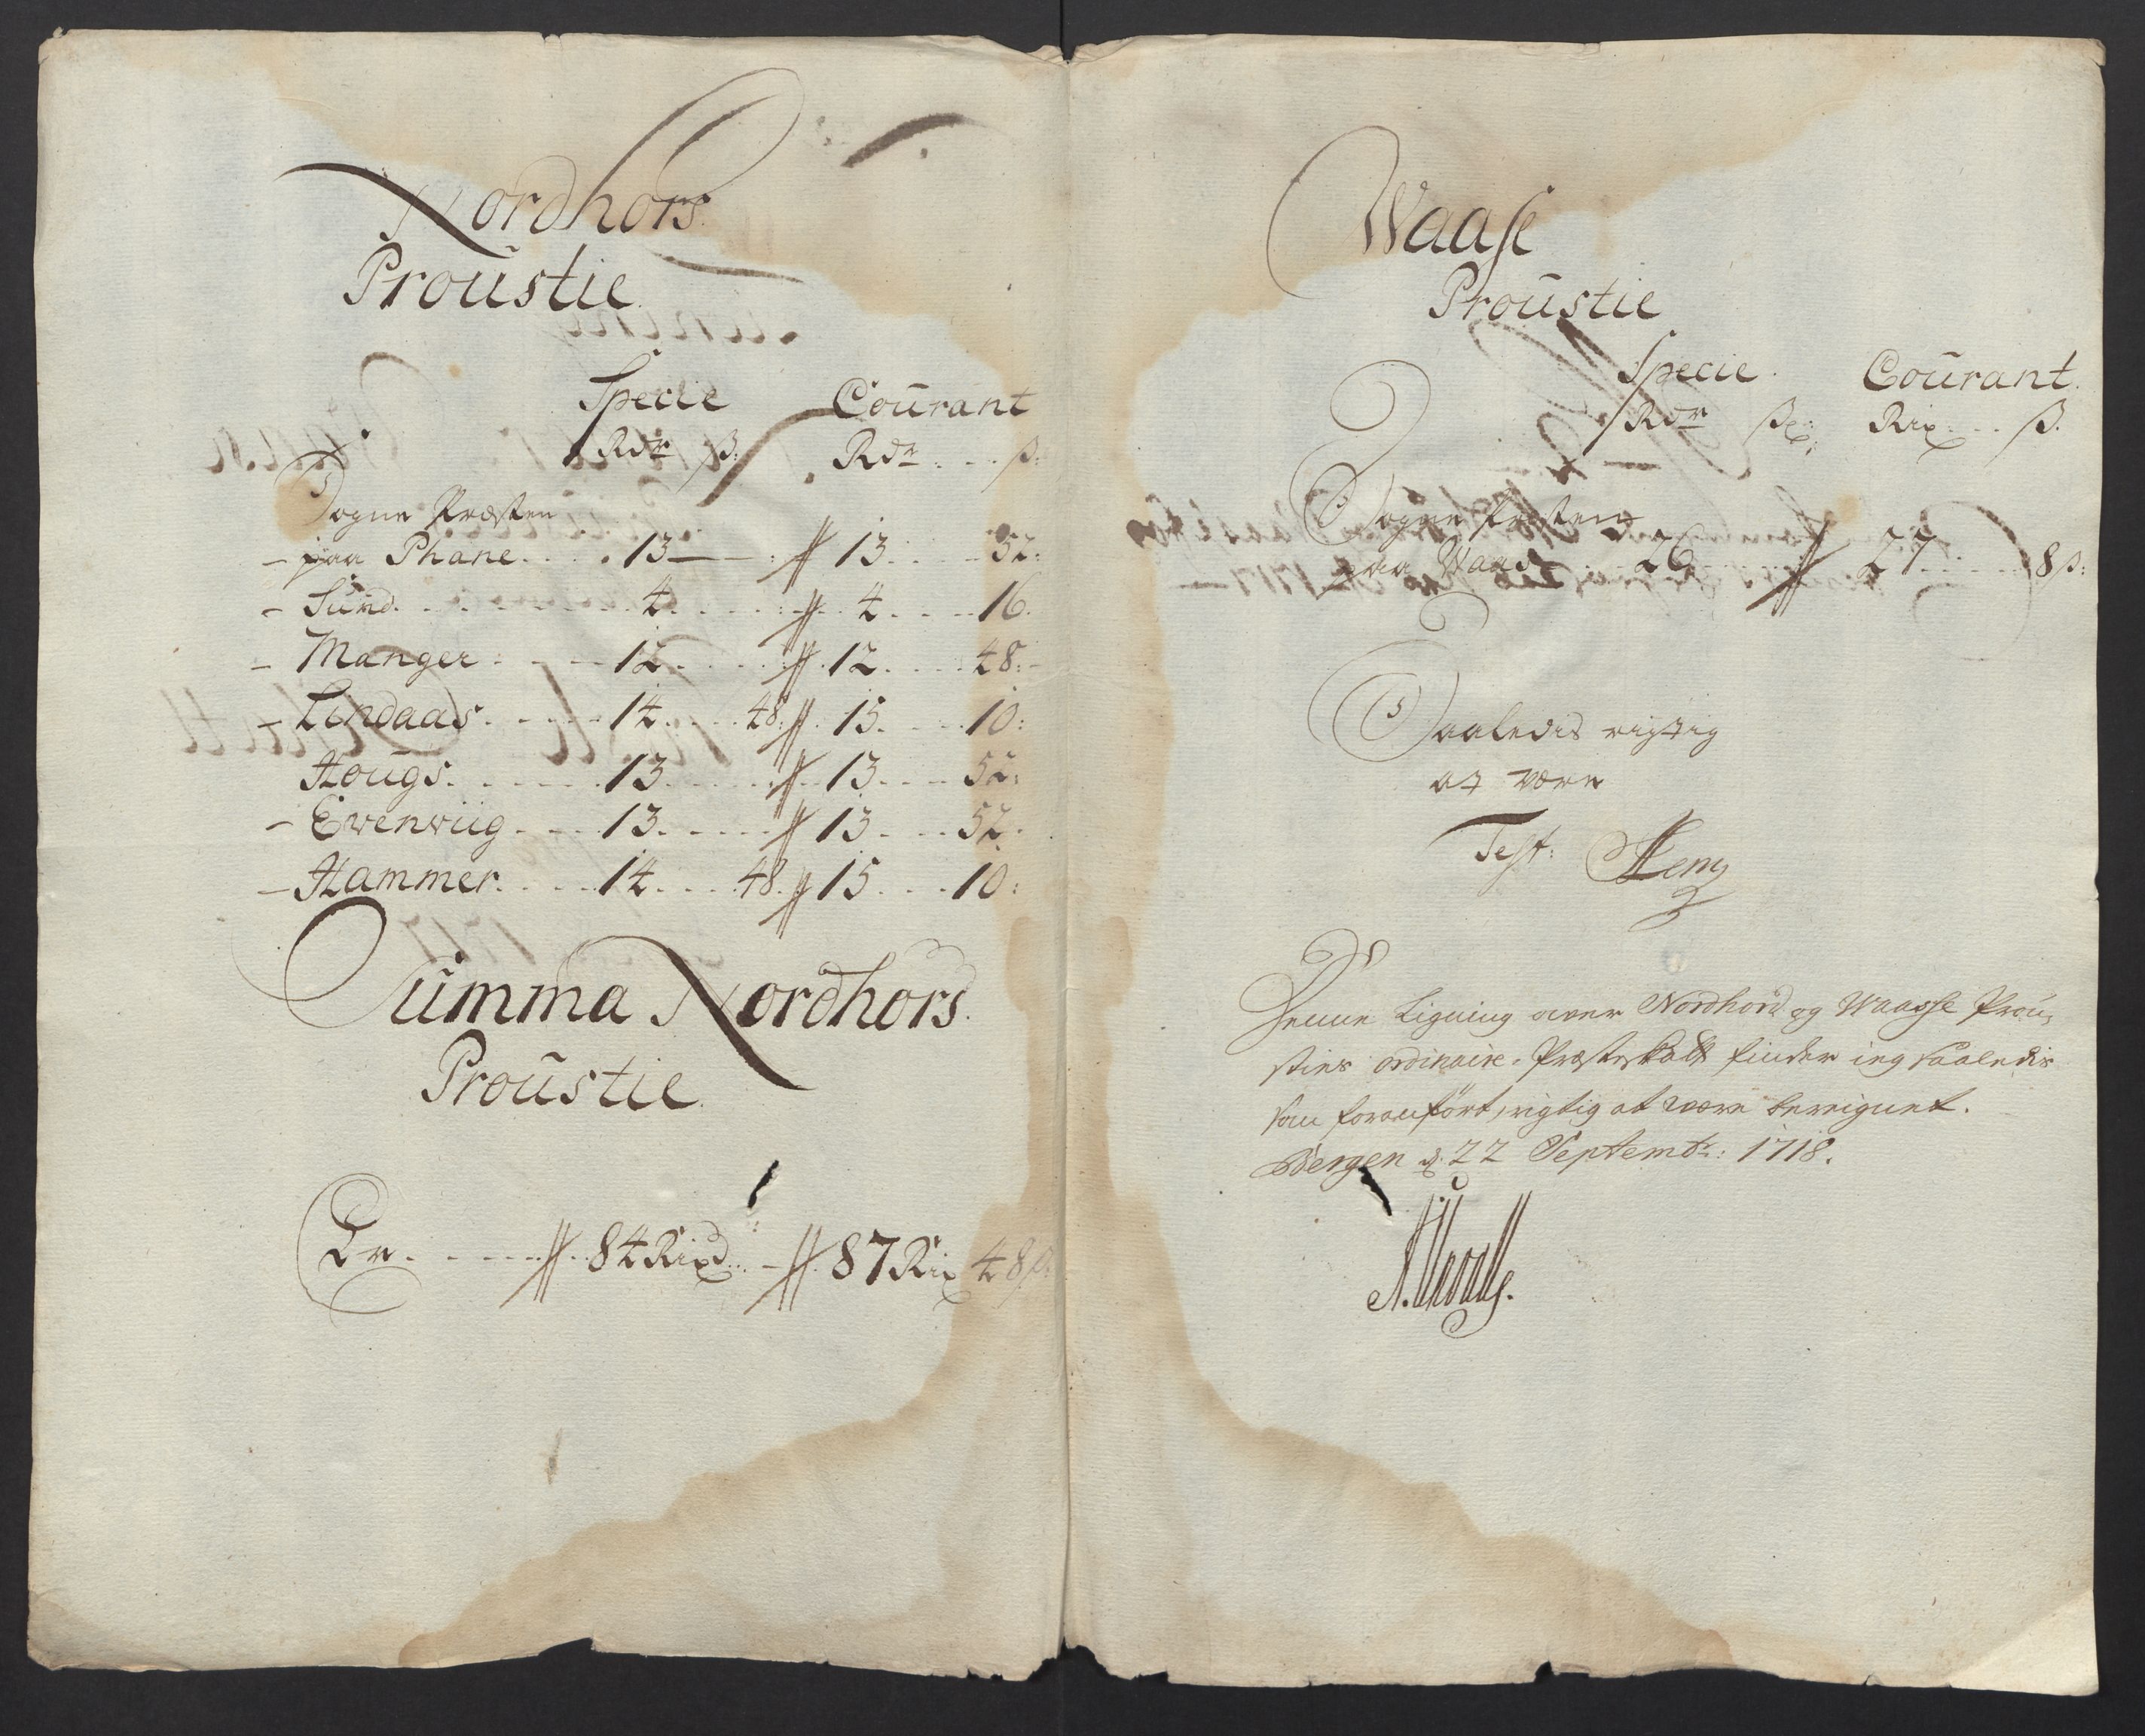 Nordhors
Proustie
Specie Courant
Rdr ß: Rdr ß:
Sogne Præsten
- paa Phane 13 — // 13 52:
- Sund 4 // 4 16.
- Manger 12 // 12 48:
- Lindaas 14 48: // 15 10:
Hougs 13 // 13 52:
- Evenviig 13 // 13 52.
- Hammer 14 48 // 15 10:
Summa Nordhors
Proustie
Er // 84 Rixd // 87 Rix 48 ß
Waase
Proustie
Specie Courant.
Rdr ß Rix ß.
Sogne Præsten
paa Waas 26 // 27 8ß:
Saaledis rigtig
at være
Test:
Denne Ligning over Nordhord og Waasse Prou-
sties ordinaire Præsteskatt finder ieg saaledis
som foranført, rigtig at være bereignet.
Bergen d: 22 Septembr: 1718.